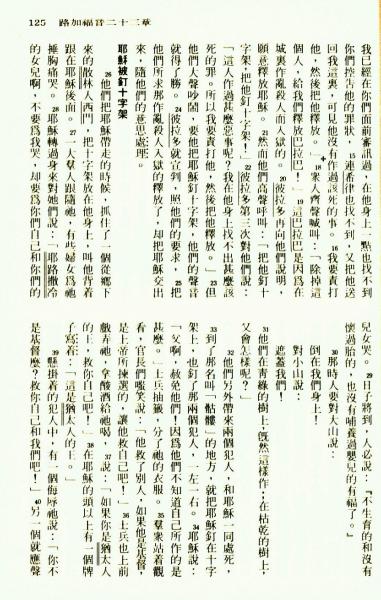 125 路加福音二十三章
我已經在你們面前審訊過,在他身上一點也找不到
你們控告他的罪狀,15連希律也找不到,又把他送
回我這裏,可見他沒有作過該死的事。16我要責打
他,然後把他釋放。」18衆人齊聲喊叫:「除掉這
個人,給我們釋放巴拉巴!」19這巴拉巴是因爲在
城裏作亂殺人而入獄的。20彼拉多再向他們說明,
願意釋放耶穌。21然而他們高聲呼叫:「把他釘十
字架,把他釘十字架!」22彼拉多第三次對他們說:
「這人作過甚麼惡事呢?我在他身上找不出甚麼該
死的罪。所以我要責打他,然後把他釋放。」23但
他們大聲吵鬧,要他把耶穌釘十字架;他們的聲音
就得了勝。24彼拉多就宣判,照他們的要求,25把
他們所求那作亂殺人入獄的釋放了,却把耶穌交出
來,隨他們的意思處理。
耶穌被釘十字架
26他們把耶穌帶走的時候,抓住了一個從鄉下
來的散林人西門,把十字架放在他身上,叫他背着
跟在耶穌後面。27一大羣人跟隨祂,有些婦女爲祂
捶胸痛哭。28耶穌轉過身來對她們說:「耶路撒冷
的女兒啊,不要爲我哭,却要爲你們自己和你們的
兒女哭。29日子將到,人必說:『不生育的和沒有
懷過胎的,也沒有哺養過嬰兒的有福了。』
30那時,人要對大山說:
倒在我們身上!
對小山說:
遮蓋我們!
31他們在青綠的樹上,旣然這樣作;在枯乾的樹上,
又會怎樣呢?」
32他們另外帶來兩個犯人,和耶穌一同處死,
33到了那名叫「髑髏」的地方,就把耶穌釘在十字
架上,也釘了那兩個犯人,一左一右。34耶穌說:
「父啊,赦免他們!因爲他們不知道自己所作的是
甚麼。」士兵抽籤,分了祂的衣服。35羣衆站着觀
看,官長們嗤笑說:「他救了別人,如果他是基督,
是上帝所揀選的,讓他救自己吧!」36士兵也上前
戲弄祂,拿酸酒給祂喝,37說:「如果你是猶太人
的王,救你自己吧!」38在耶穌的頭以上有一個牌
子寫着:「這是猶太人的王。」
39懸掛着的犯人中,有一個侮辱祂說:「你不
是基督麼?救你自己和我們吧!」40另一個就應聲